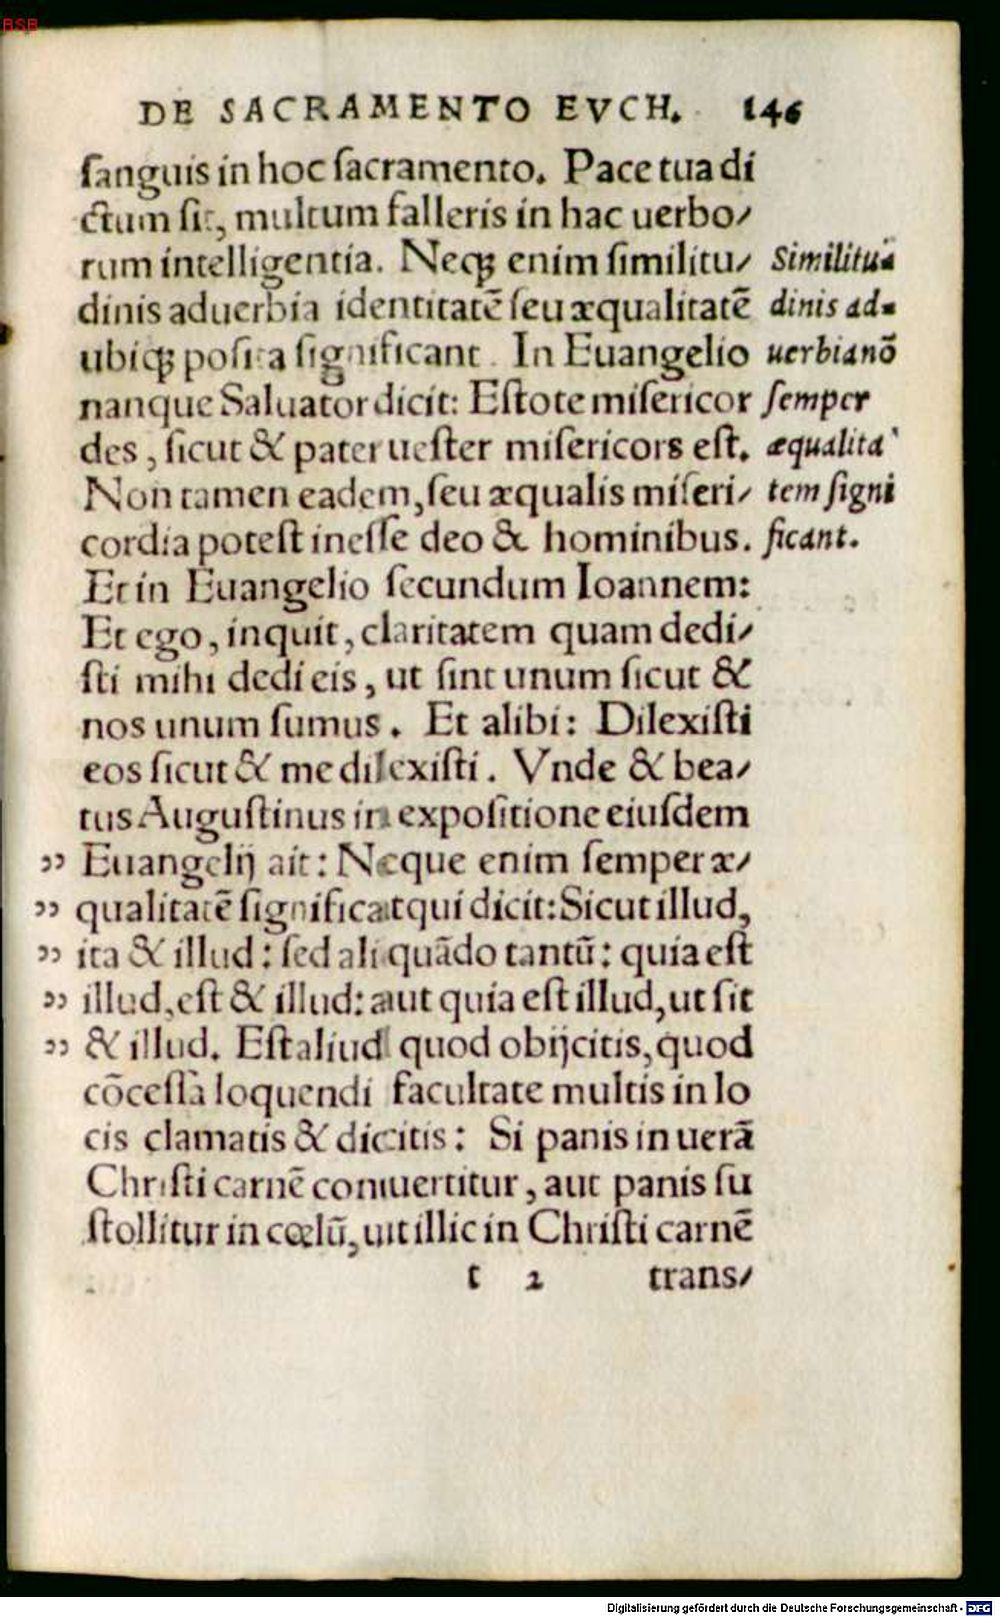 BSB
DE SACRAMENTO EVCH. 146
ſanguis in hoc ſacramento. Pace tua di
ctum ſit, multum falleris in hac uerbo/
rum intelligentia. Neqꝫ enim ſimilitu/
dinis aduerbia identitatē ſeu æqualitatē
ubiqꝫ poſita ſignificant. In Euangelio
nanque Saluator dicit: Eſtote miſericor
des, ſicut & pater ueſter miſericors eſt.
Non tamen eadem, ſeu æqualis miſeri/
cordia poteſt ineſſe deo & hominibus.
Et in Euangelio ſecundum Ioannem:
Et ego, inquit, claritatem quam dedi/
ſti mihi dedi eis, ut ſint unum ſicut &
nos unum ſumus. Et alibi: Dilexiſti
eos ſicut & me dilexiſti. Vnde & bea/
tus Auguſtinus in expoſitione eiuſdem
„ Euangelij ait: Neque enim ſemper æ/
„ qualitatē ſignificat qui dicit: Sicut illud,
„ ita & illud: ſed aliquādo tantū: quia eſt
„ illud, eſt & illud: aut quia eſt illud, ut ſit
„ & illud. Eſt aliud quod obijcitis, quod
cōceſſa loquendi facultate multis in lo
cis clamatis & dicitis: Si panis in uerā
Chriſti carnē conuertitur, aut panis ſu
ſtollitur in cœlū, ut illic in Chriſti carnē
t 2 trans/
Similitu-
dinis ad-
uerbia nō
ſemper
æqualita
tem ſigni
ficant.
Digitalisierung gefördert durch die Deutsche Forschungsgemeinschaft - DFG